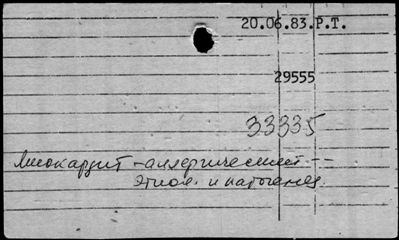 20.06.83.Р.Т.
29555
33335
Миокардит - аллергический --
этиол. и патогенез.